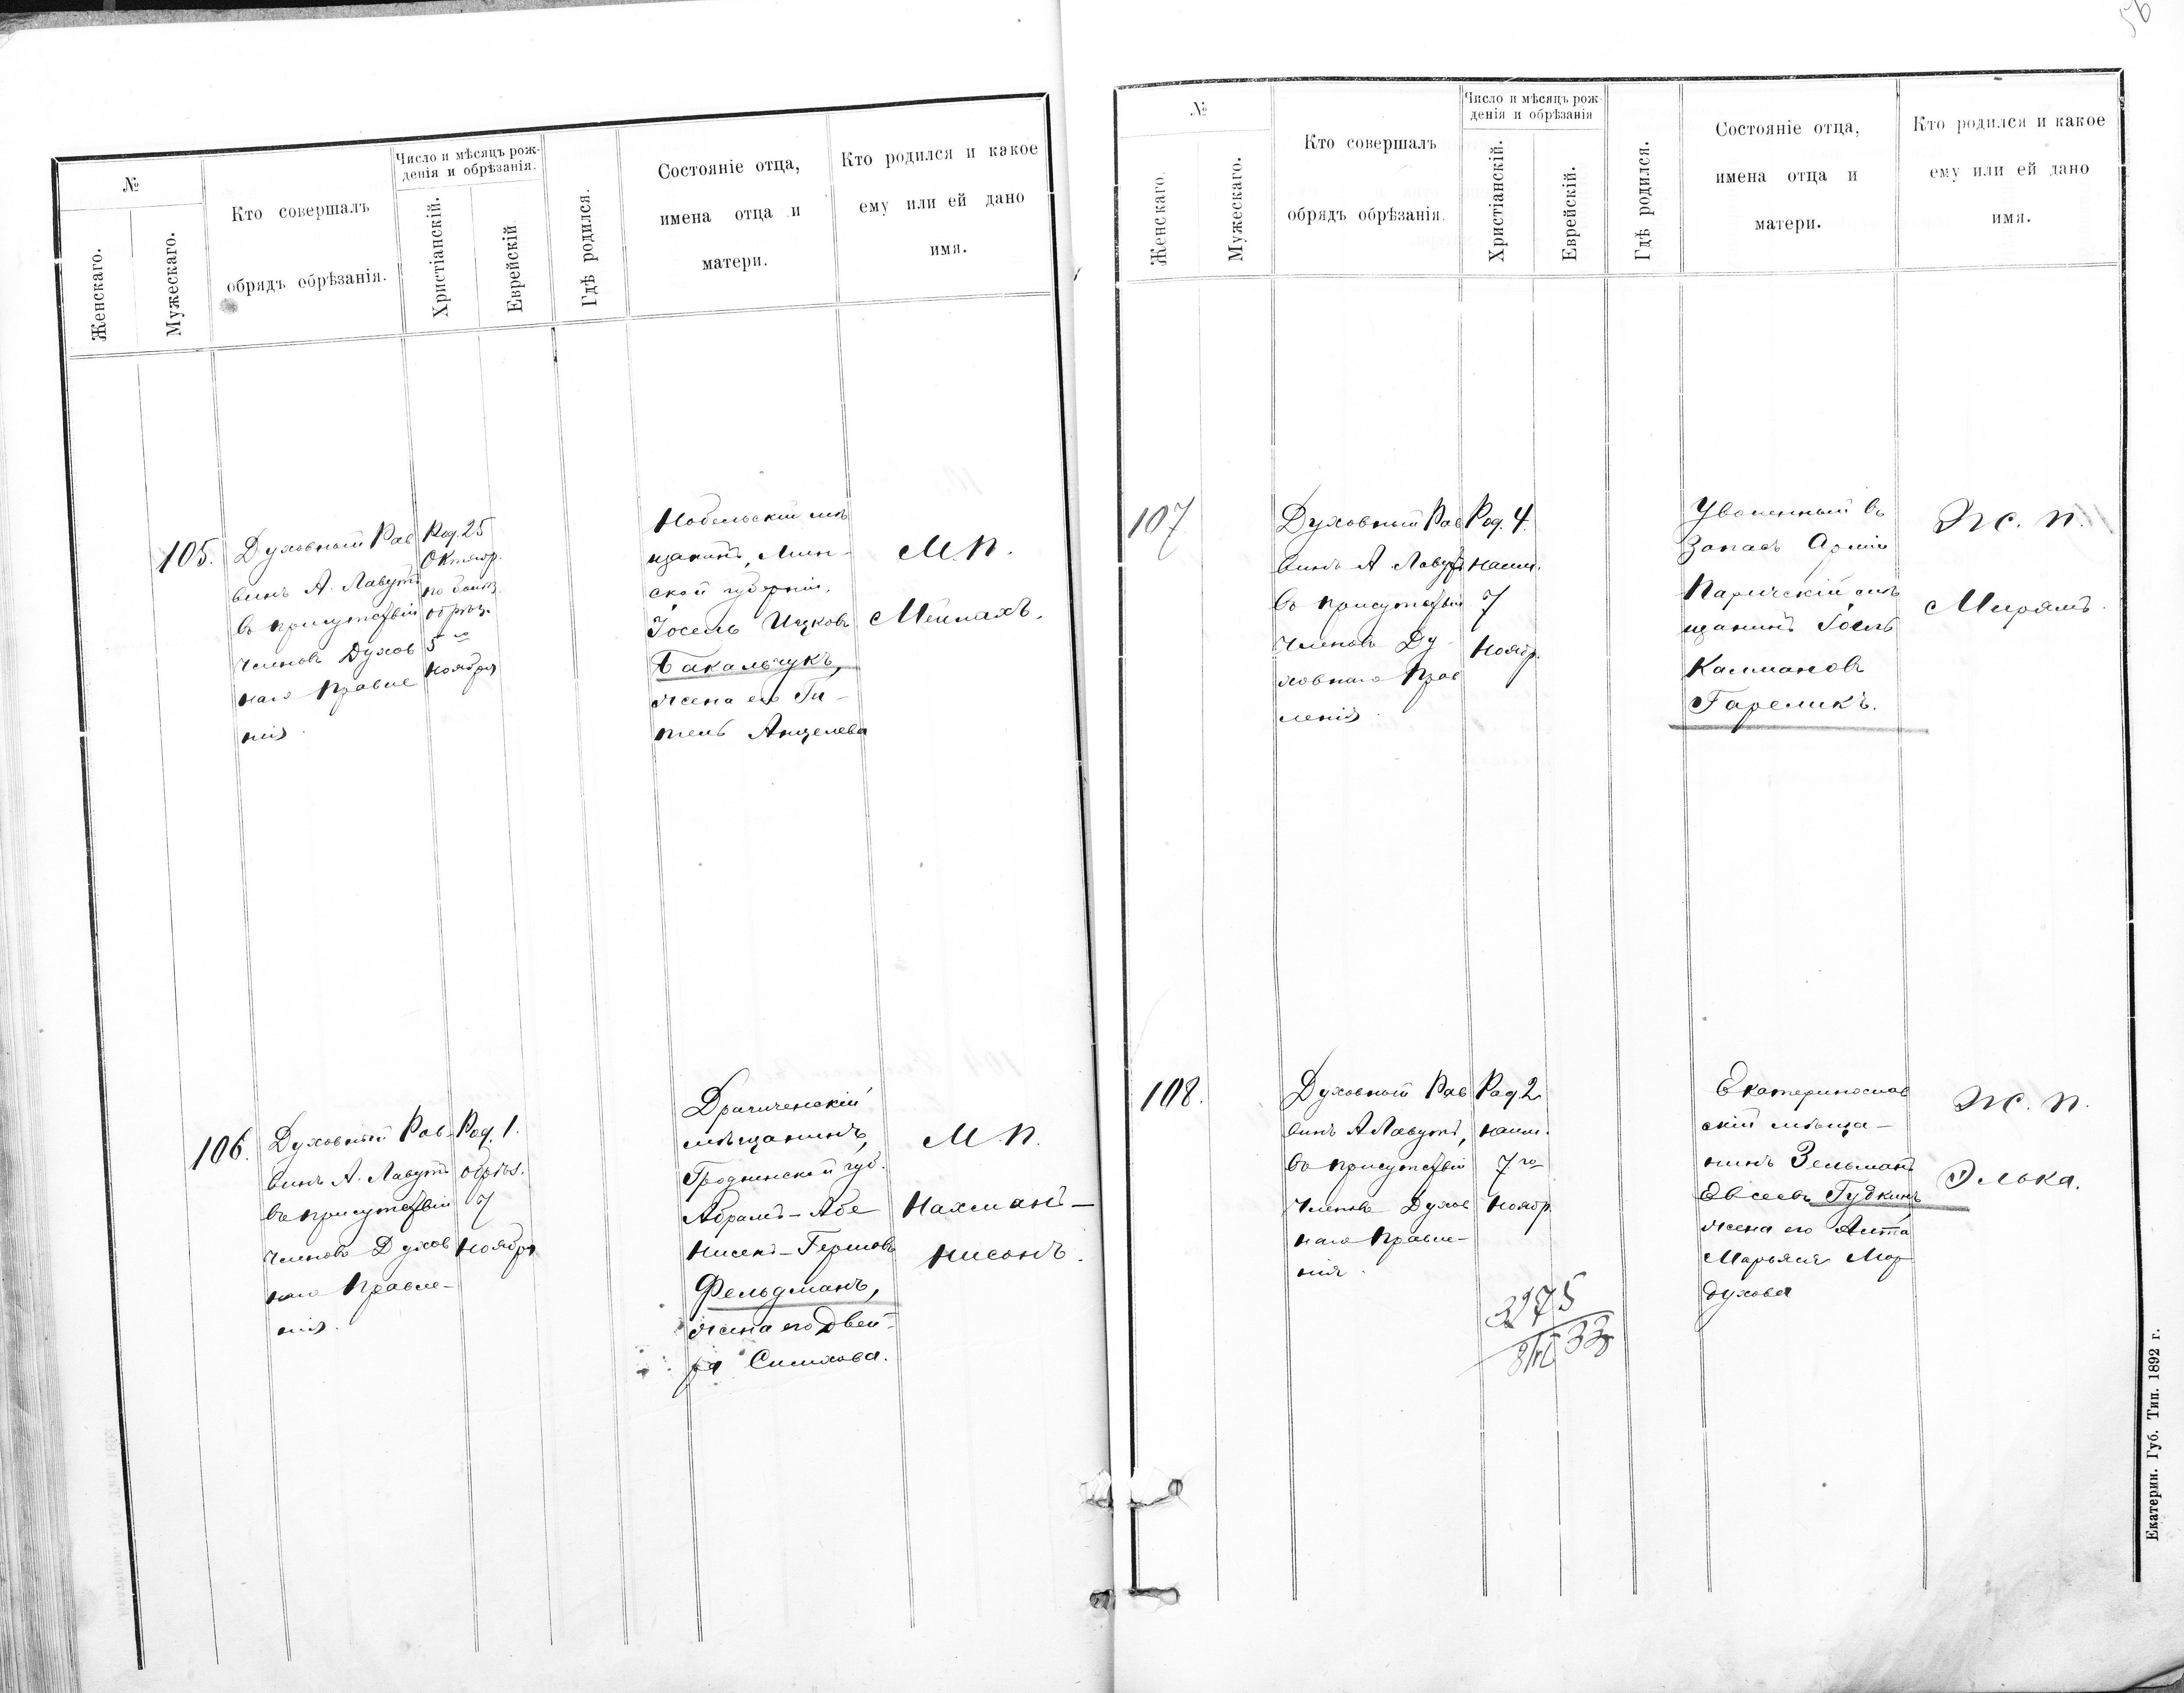 56
№
Женскаго.
Мужескаго.
Кто совершалъ
обрядъ обрѣзанія.
Число и мѣсяцъ рож-
денія и обрѣзанія.
Христіанскій.
Еврейскій
Гдѣ родился.
Состояніе отца,
имена отца и
матери.
Кто родился и какое
ему или ей дано
имя.
105.
Духовный Рав
винъ А. Лавутъ
въ присутствіи
членовъ Духов
наго Правле
нія.
Род. 25
Октябр.
по
обрѣз.
5го
Ноября
Нобельскій мѣ
щанинъ, Мин-
ской губерніи,
Іосель Ицковъ
Бакальчукъ,
жена его Ги-
тель Анцелева
М. п.
Мейлахъ.
106.
Духовный Рав-
винъ А. Лавутъ
въ присутствіи
членовъ Духов
наго Правле-
нія.
Род. 1.
обрѣз.
7
Ноября
Драгиченскій
мѣщанинъ,
Гродненской губ.
Абрамъ-Абе
Нисенъ-Гершовъ
Фельдманъ,
жена его Двей-
ра Симхова.
М. п.
Нахманъ-
Нисонъ.
№
Женскаго.
Мужескаго.
Кто совершалъ
обрядъ обрѣзанія.
Число и мѣсяцъ рож-
денія и обрѣзанія
Христіанскій.
Еврейскій.
Гдѣ родился.
Состояніе отца,
имена отца и
матери.
Кто родился и какое
ему или ей дано
имя.
107
Духовный Рав
винъ А Лавутъ
въ присутствіи
членовъ Ду-
ховнаго Прав
ленія.
Род. 4.
наим.
7
Ноябр.
Уволенный въ
запасъ Арміи
Паричскій мѣ
щанинъ Іосель
Калмановъ
Гареликъ.
Ж. п.
Мирямъ.
108.
Духовный Рав
винъ А Лавутъ,
въ присутствіи
членовъ Духов
наго Правле-
нія.
Род 2
наим.
7.го
Ноябр.
Екатеринослав
скій мѣща-
нинъ Зельманъ
Евсеевъ Гудкинъ
жена его
Марьяся Мор
духова
Ж. п.
Элька.
275
33
Екатерин. Губ. Тип. 1892 г.